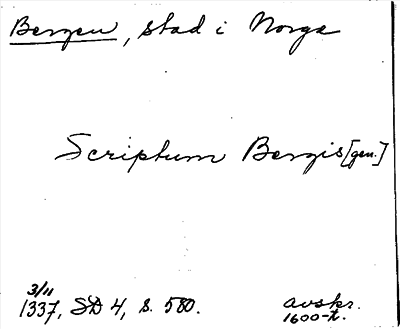 Bergen, stad i Norge
Scriptum Bergis [gen.]
3/11
1337, SD 4, s. 580.
avskr.
1600-t.